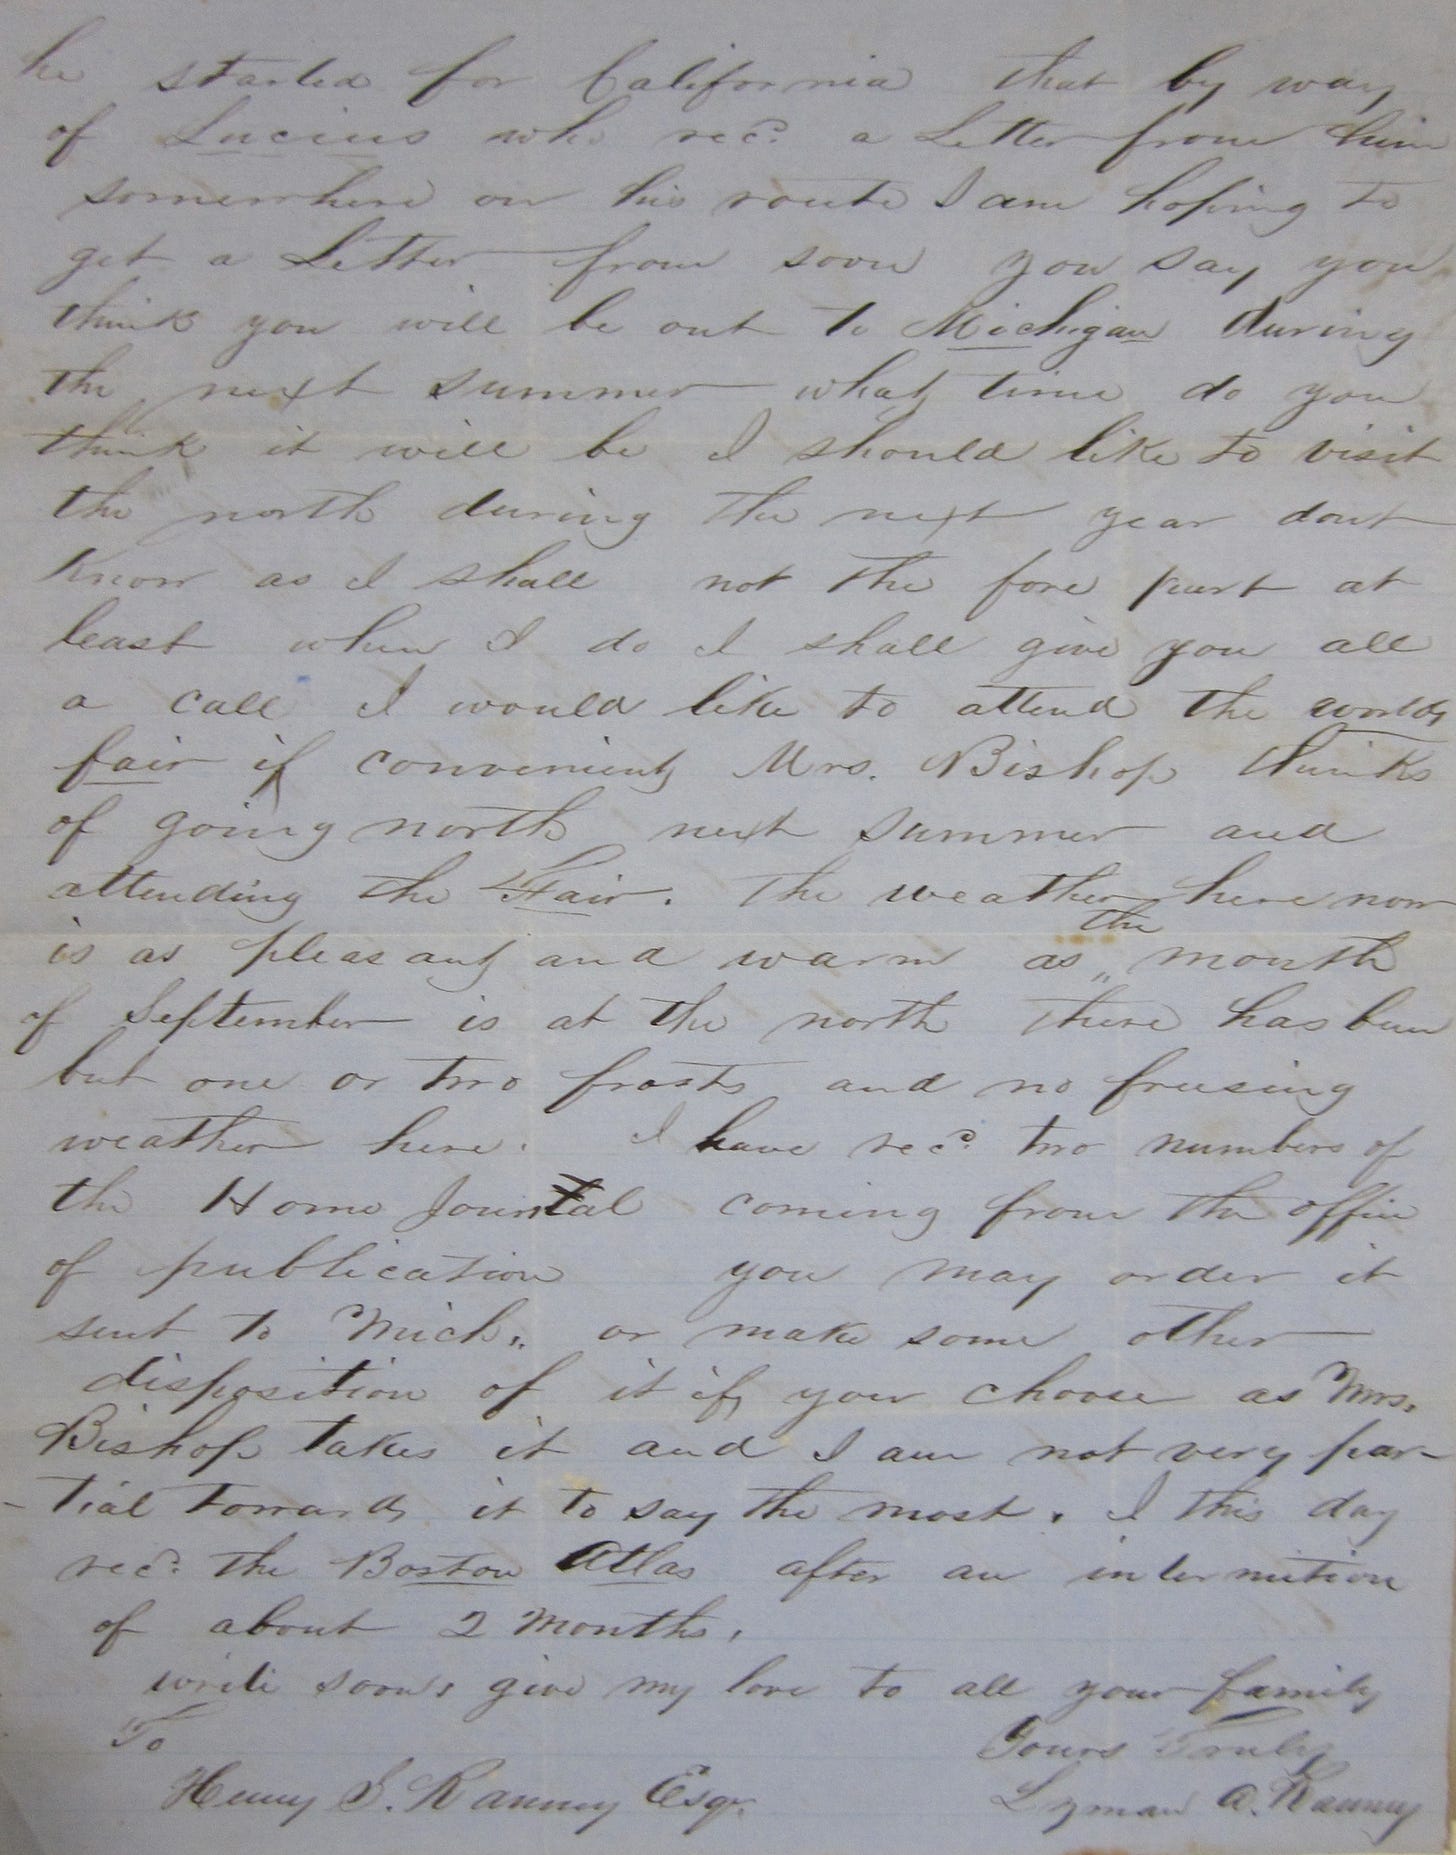 he started for California that by way
of Lucius who recd. a Letter from him
somewhere on his route I am hoping to
get a Letter from soon you say you
think you will be out to Michigan during
the next summer what time do you
think it will be I should like to visit
the north during the next year dont
know as I shall not the fore part at
least when I do I shall give you all
a call I would like to attend the worlds
fair if convenient Mrs. Bishop thinks
of going north next summer and
attending the Fair. The weather here now
is as pleasant and warm as the month
of September is at the north There has been
but one or two frosts and no freesing
weather here. I have recd. two numbers of
the Home Journal coming from the office
of publication you may order it
sent to Mich. or make some other
disposition of it if you choose as Mrs.
Bishop takes it and I am not very par-
-tial towards it to say the most. I this day
recd. the Boston Atlas after an intermition
of about 2 Months.
write soon & give my love to all your family
To Yours Truly
Henry S. Ranney Esqr. Lyman A. Ranney